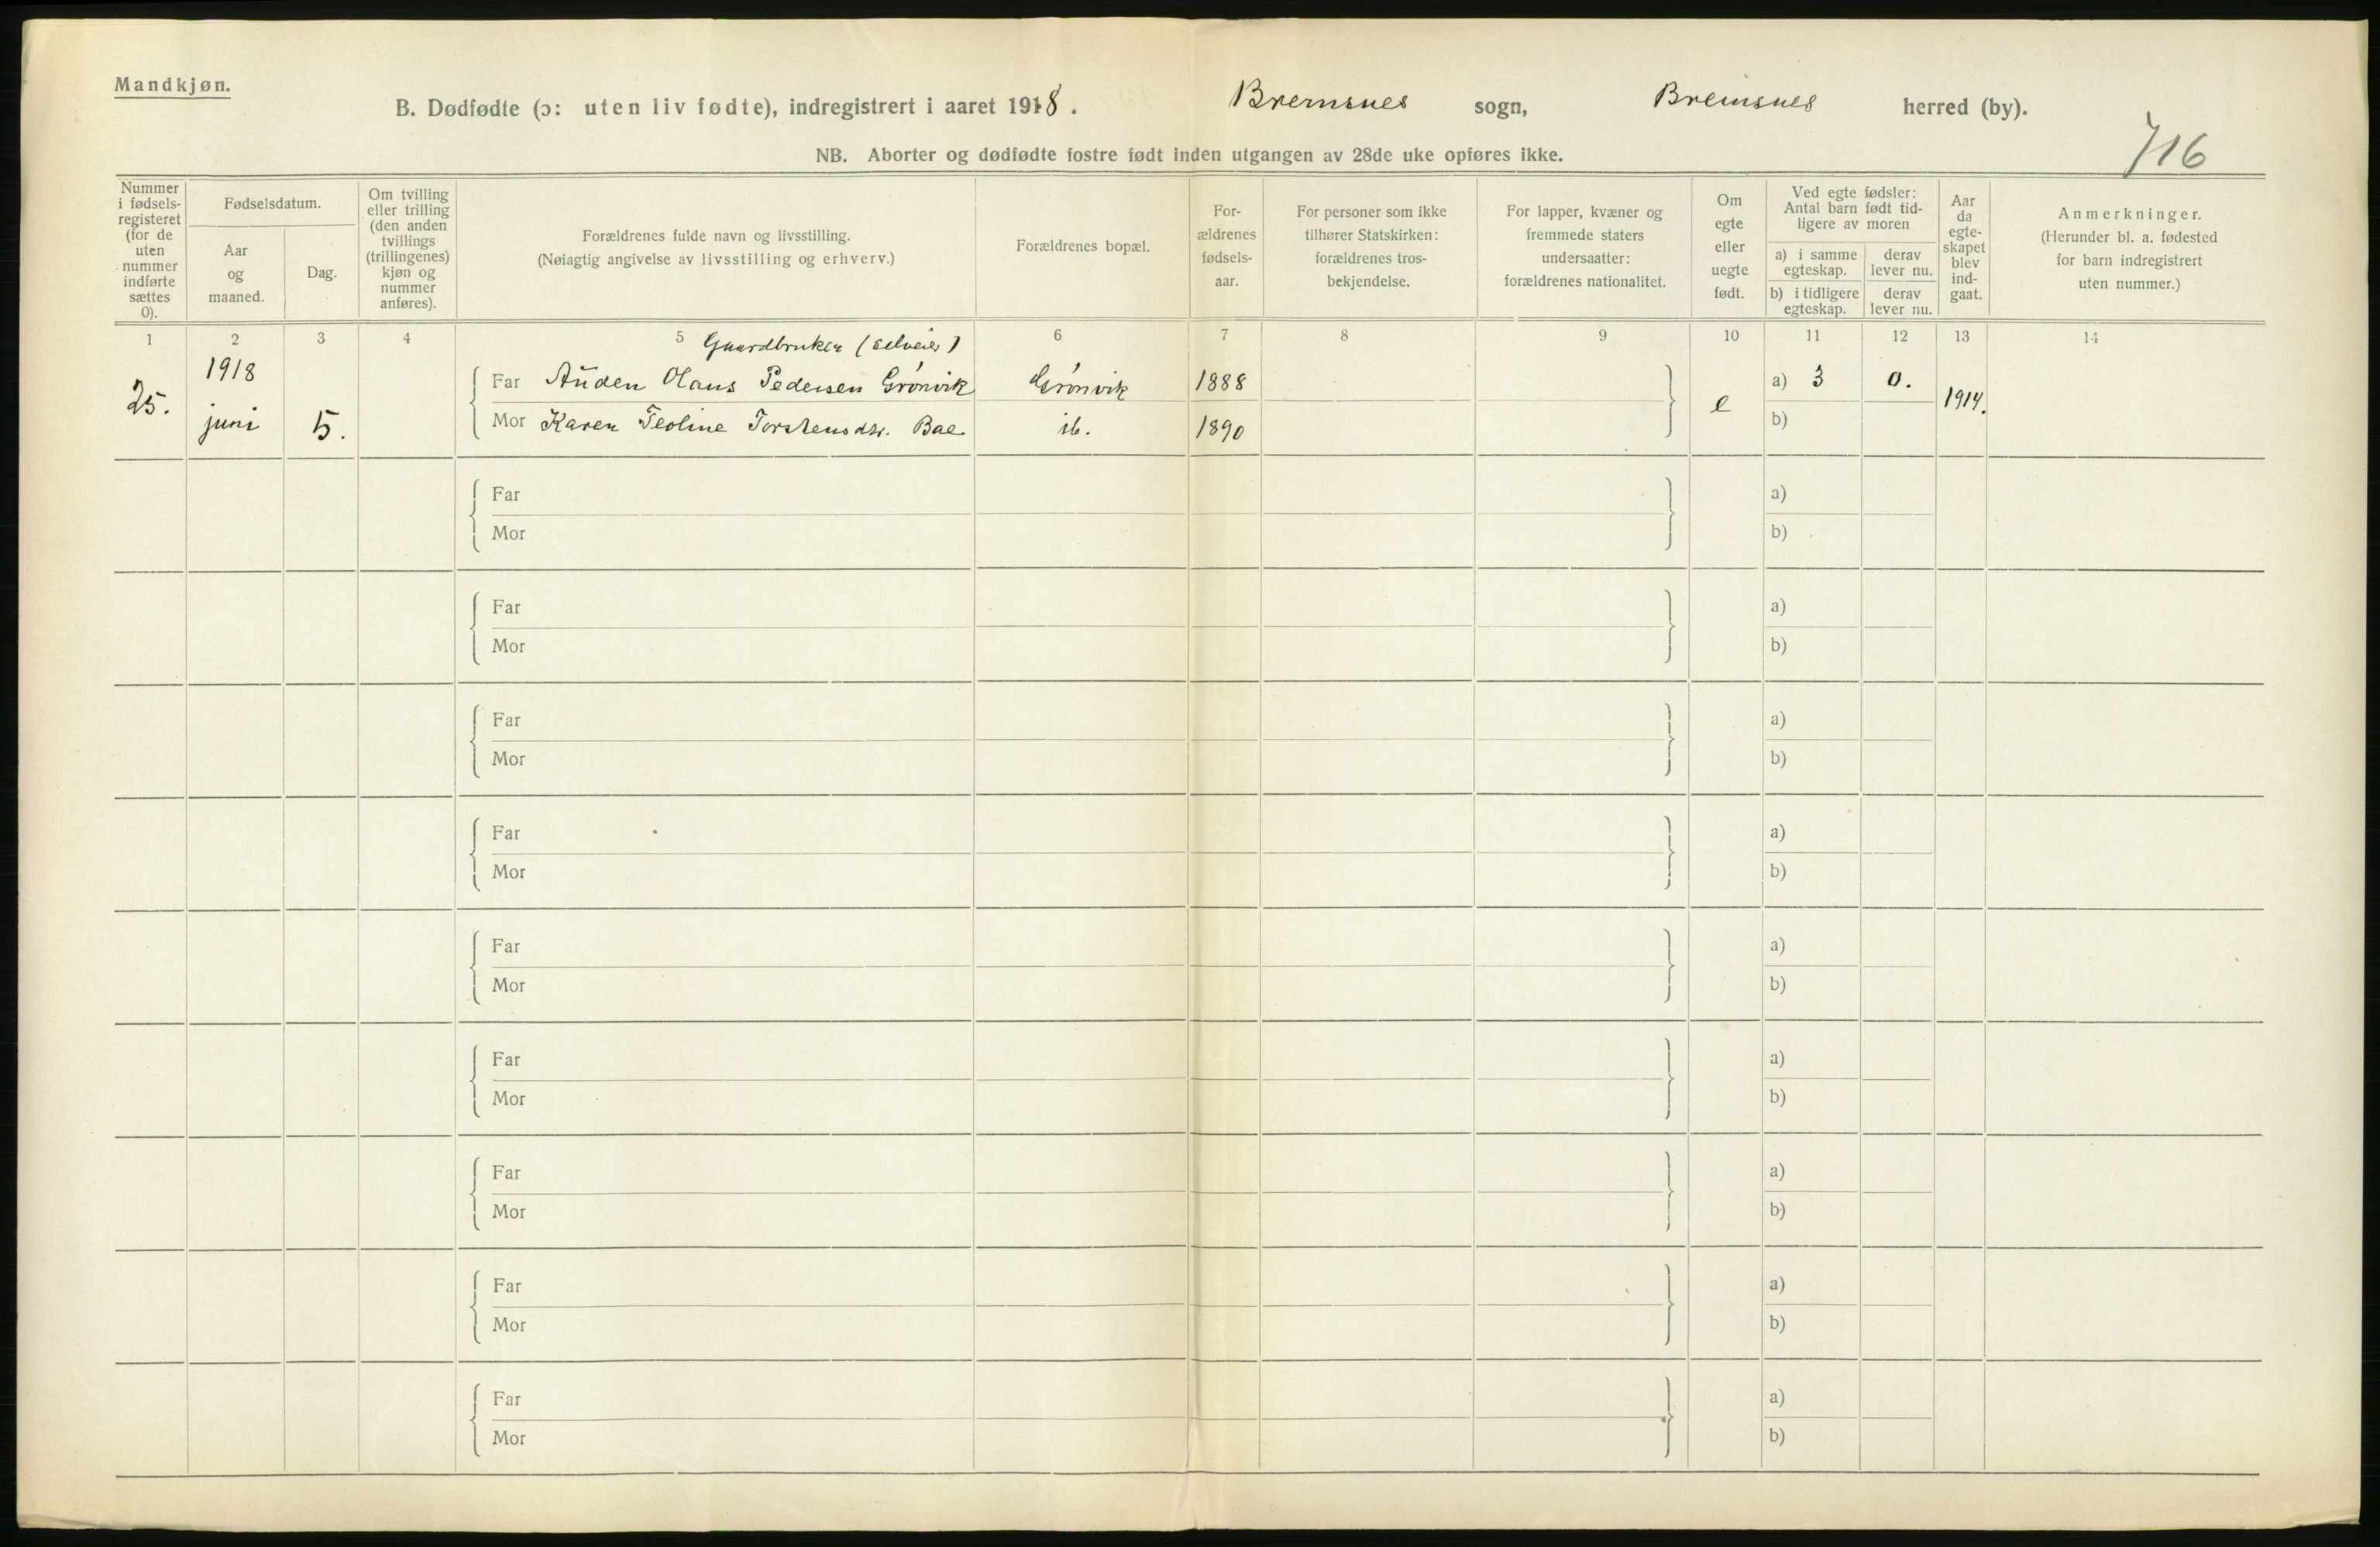 Mandkjøn.
B. Dødfødte (ɔ: uten liv fødte), indregistrert i aaret 1918. Bremsnes sogn, Bremsnes herred (by).
716
NB. Aborter og dødfødte fostre født inden utgangen av 28de uke opføres ikke.
Nummer
i fødsels-
registeret
(for de
uten
nummer
indførte
sættes
0).
Fødselsdatum.
Aar
og
maaned.
Dag.
Om tvilling
eller trilling
(den anden
tvillings
(trillingenes)
kjøn og
nummer
anføres).
Forældrenes fulde navn og livsstilling.
(Nøiagtig angivelse av livsstilling og erhverv.)
Forældrenes bopæl.
For-
ældrenes
fødsels-
aar.
For personer som ikke
tilhører Statskirken:
forældrenes tros-
bekjendelse.
For lapper, kvæner og
fremmede staters
undersaatter:
forældrenes nationalitet.
Om
egte
eller
uegte
født.
Ved egte fødsler:
Antal barn født tid-
ligere av moren
a) i samme
egteskap.
derav
lever nu.
b) i tidligere
egteskap.
derav
lever nu.
Aar
da
egte-
skapet
blev
ind-
gaat.
Anmerkninger.
(Herunder bl. a. fødested
for barn indregistrert
uten nummer.)
1 2 3 4 5 6 7 8 9 10 11 12 13 14
Gaardbruker (selveier)
25. 1918
juni 5.
Far Auden Olaus Pedersen Grønvik Grønvik 1888 e a) 3 0. 1914.
Mor Karen Teoline Torstensdtr. Bae ib. 1890 b)
Far a)
Mor b)
Far a)
Mor b)
Far a)
Mor b)
Far a)
Mor b)
Far a)
Mor b)
Far a)
Mor b)
Far a)
Mor b)
Far a)
Mor b)
Far a)
Mor b)